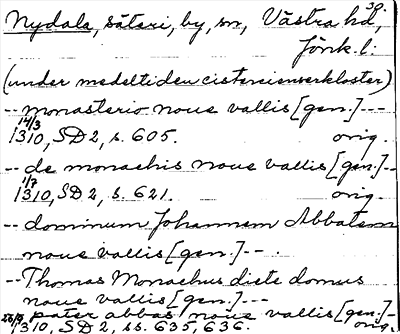 Nydala, säteri, by, sn, Västra hd, 30.
Jönk. l:
(under medeltiden cistercienserkloster)
-- monasterio noue vallis [gen.] ---
14/3 1310, SD 2, s. 605. orig.
-- de monachis noue vallis [gen.] --
1/7 1310, SD 2, s. 621. orig.
-- dominum Johannem Abbatem
noue vallis [gen.] -- .
-- Thomas Monachus dicte domus
noue vallis [gen.] ---
-- pater abbas noue vallis [gen.] --
1310, SD 2, ss. 635, 636. orig.